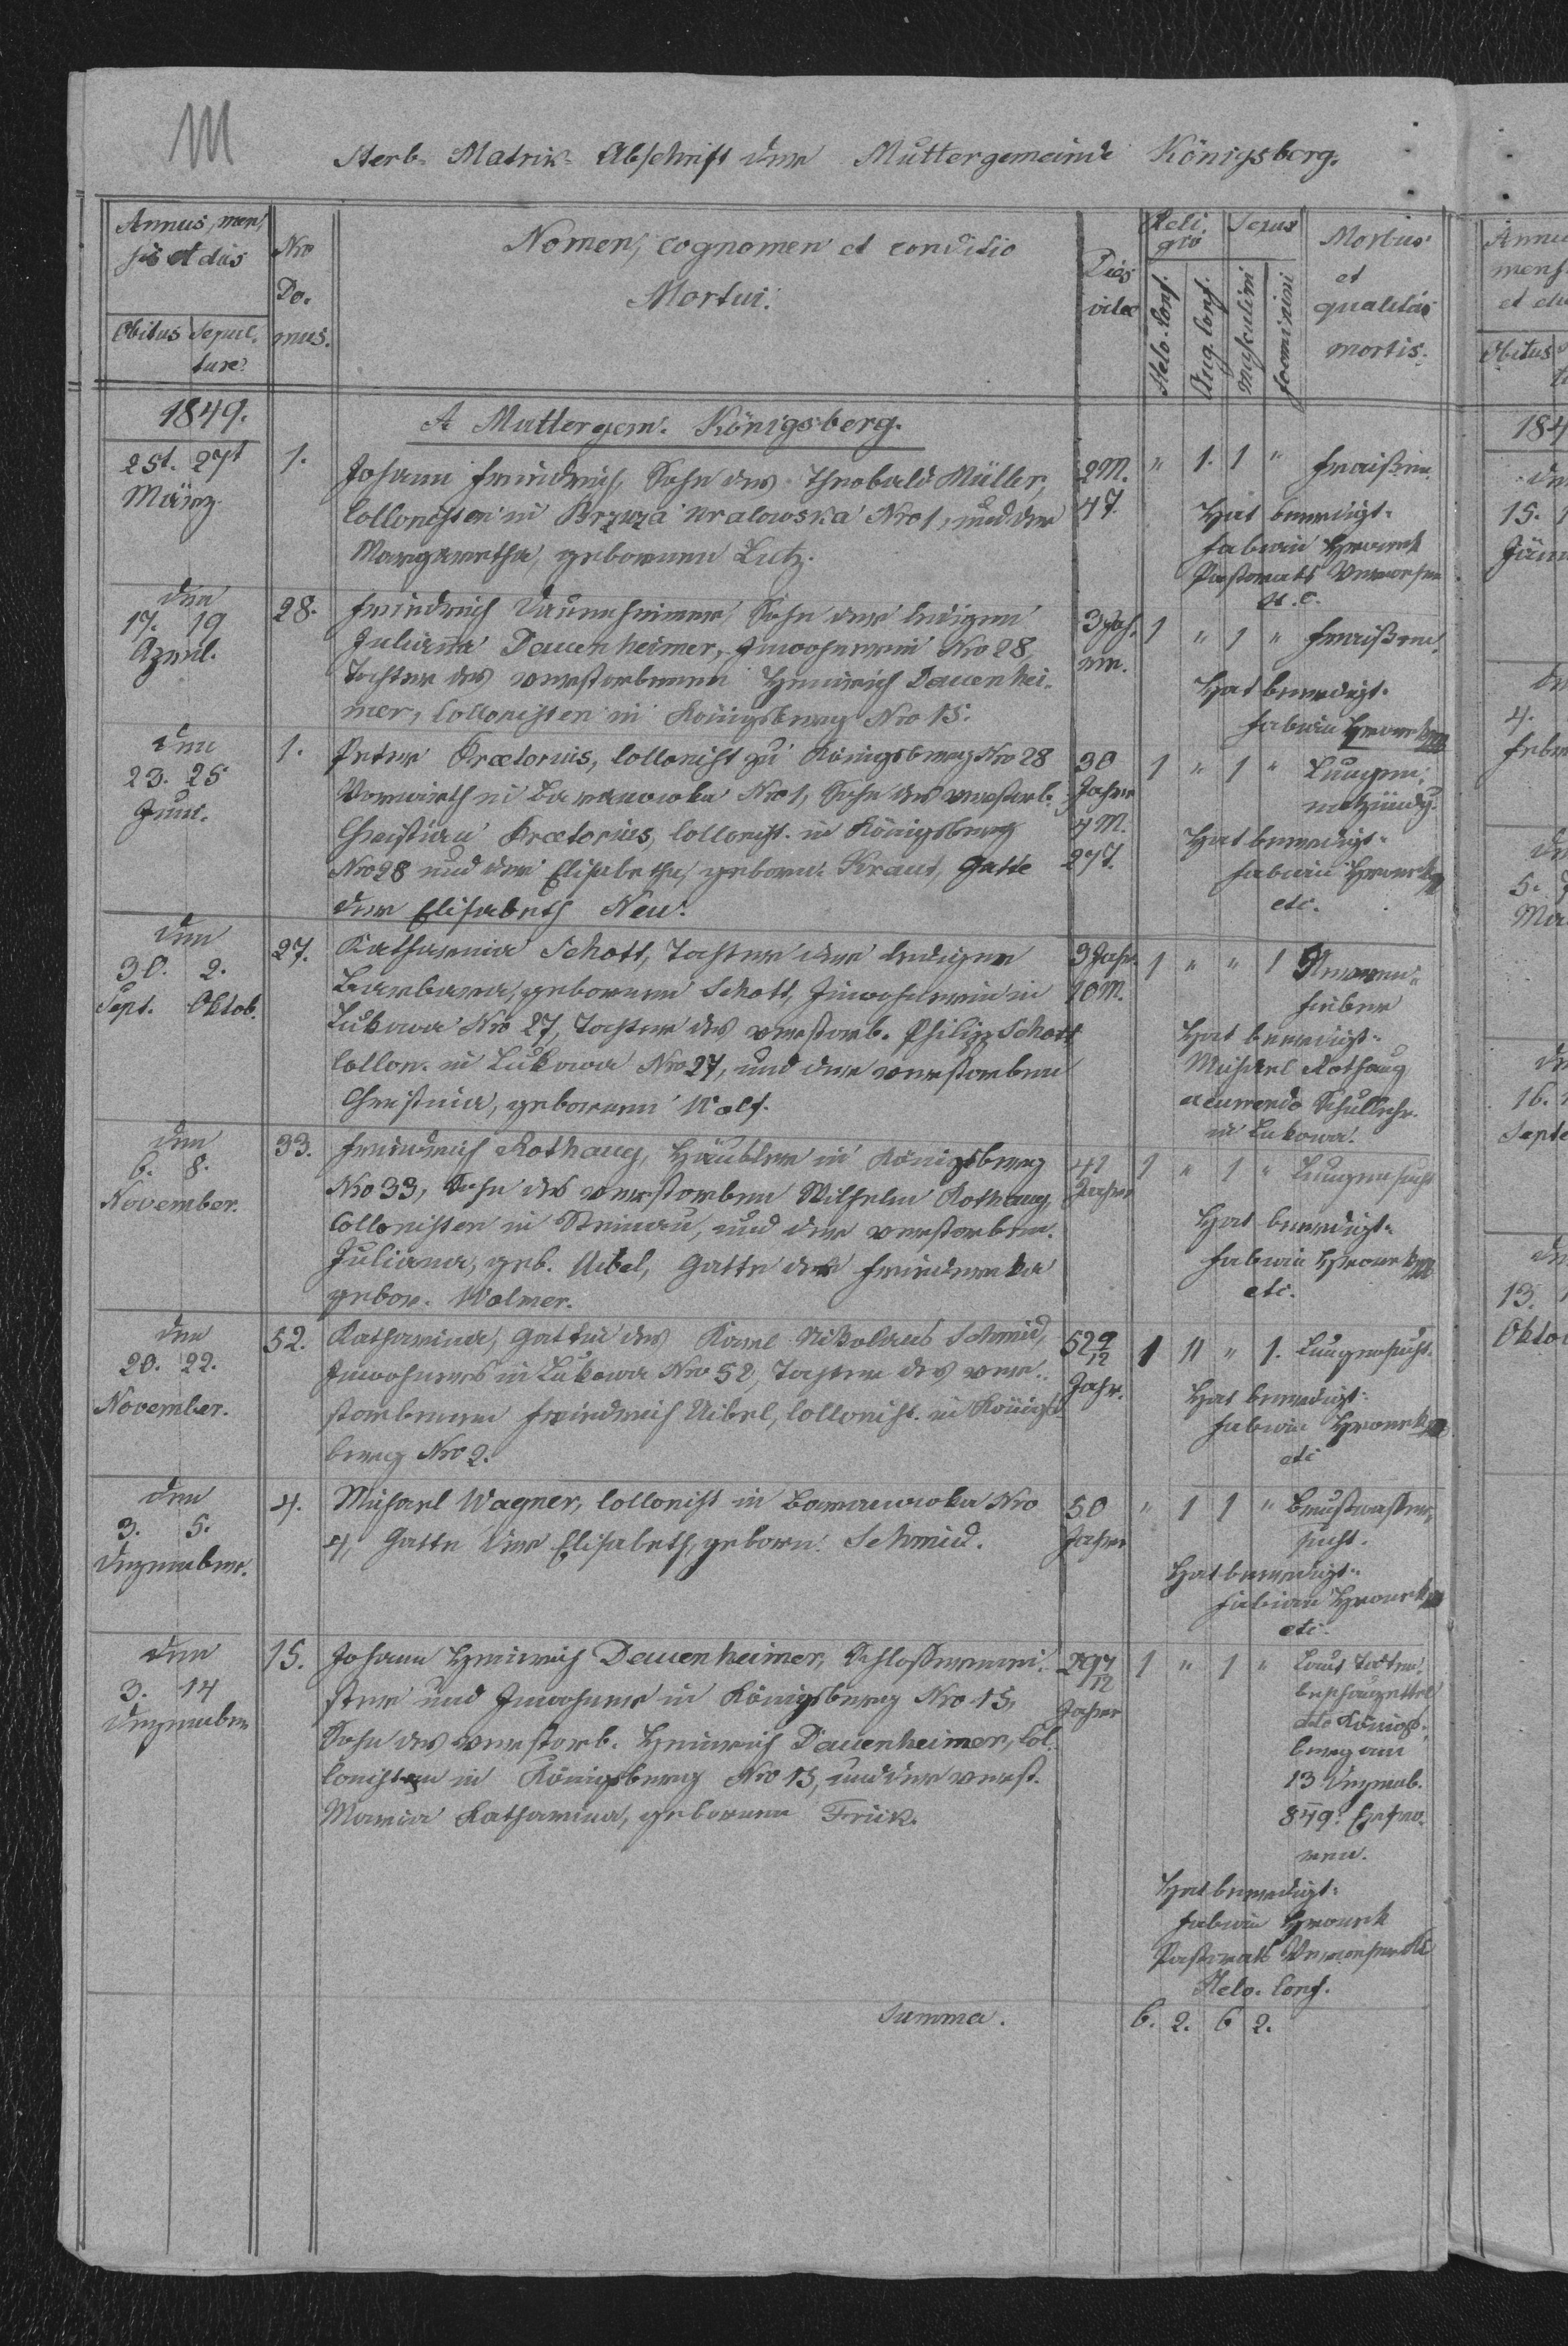 III
Sterb- Matrik- Abschrift der Muttergemeinde Königsberg.
Annus, men,
sis et dies
Obitus Sepul-
turæ
Nro
Do-
mus.
Nomen, cognomen et conditio
Mortui.
Dies
vitæ
Reli-
gio
Helv. Conf.
Aug. Conf.
Sexus
masculini
foeminini
Morbus
et
qualitas
mortis.
1849.
A Muttergem. Königsberg.
25t. 27t
März
1.
Johann Friedrich, Sohn des Theobald Müller,
Collonisten in Brzyza wralowska Nro 1, und der
Margaretha, gebornen Lutz.
2 M.
4 T.
" 1. 1 "
Fraißen.
Hat beerdigt:
Fabian Hronek
Pastorats Verweser
H. C.
den
17. 19
April.
28.
Friedrich Dauenheimer, Sohn der ledigen
Juliana Dauenheimer, Inwohnerin Nro 28,
Tochter des verstorbenen Heinrich Dauenhei-
mer, Collonisten in Königsberg Nro 15.
3 Jah-
ren.
1 " 1 "
Fraißen.
Hat beerdigt:
Fabian Hronek
den
23. 25
Juni.
1.
Peter Prætorius, Collonist zu Königsberg Nro 28
Vorwirth in Baranowka Nro 1, Sohn des verstorb.
Christian Prætorius, Collonist. in Königsberg
Nro 28 und der Elisabetha, geborn. Kraut, Gatte
der Elisabeth Neu.
30
Jahre
4 M.
27 T.
1 " 1 "
Lungen-
entzündg.
Hat beerdigt:
Fabian Hronek
etc.
den
30. 2.
Sept. Oktob.
27.
Katharina Schott, Tochter der ledigen
Barbara, gebornen Schott, Inwohnerin in
Lukowa Nro 27, Tochter des verstorb. Philipp Schott
Collon. in Lukowa Nro 27, und der verstorbenen
Christina, gebornen Wolf.
3 Jahr.
10 M.
1 " " 1
Nerven-
fieber
Hat beerdigt:
Michael Rothaug
Schullehr.
in Lukowa.
den
6. 8.
November.
33.
Friedrich Rothaug, Häusler in Königsberg
Nro 33, Sohn des verstorbenen Wilhelm Rothaug,
Collonisten in Steinau, und der verstorbenen
Juliana, geb. Uibel, Gatte der Friederika
gebor. Wolmer.
41
Jahre
1 " 1 "
Lungensucht
Hat beerdigt:
Fabian Hronek
etc.
den
20. 22.
November.
52.
Katharina, Gattin des Karl Nikolaus Schmid,
Inwohners in Lukowa Nro 52, Tochter des ver-
storbenen Friedrich Uibel, Collonist. in Königs-
berg Nro 2.
52 9/12
Jahr.
1 " " 1.
Lungensucht.
Hat beerdigt:
Fabian Hronek
etc
den
3. 5.
Dezember.
4.
Michael Wagner, Collonist in Baranowka Nro
4, Gatte der Elisabeth, geborn. Schmid.
50
Jahre
" 1 1 "
Brustwasser-
sucht.
Hat beerdigt:
Fabian Hronek
etc.
den
3. 14
Dezember
15.
Johann Heinrich Dauenheimer, Schlossermei-
ster und Inwohner in Königsberg Nro 15,
Sohn des verstorb. Heinrich Dauenheimer, Col-
lonisten in Königsberg Nro 15, und der verst.
Maria Katharina, gebornen Frick.
29 7/12
Jahre
1 " 1 "
Laut Todten-
beschauzettel
dto Königs-
berg am
13 Dezemb.
849. Erfro-
ren.
Hat beerdigt:
Fabian Hronek
Pastorats Verweser
Helv. Conf.
Summa.
6. 2. 6 2.